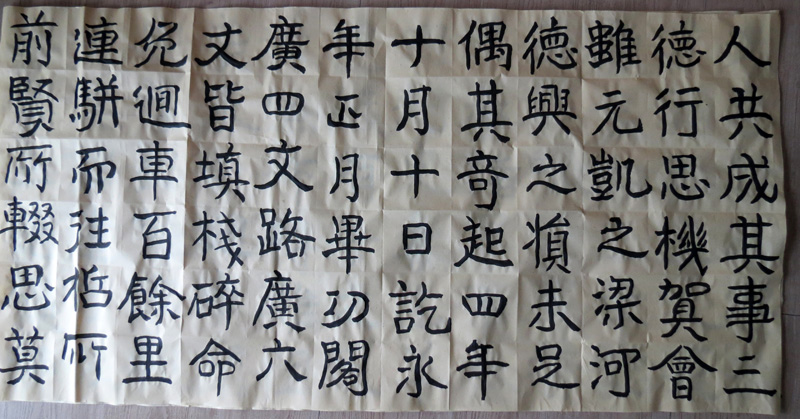 人共成其事三
德行思機賀會
雖元凱之梁河
德興之損未足
偶其奇起四年
十月十日訖永
年正月畢功閣
廣四文路廣六
丈皆填棧碎命
免迴車百餘里
連駢而往哲所
前賢所輟思莫